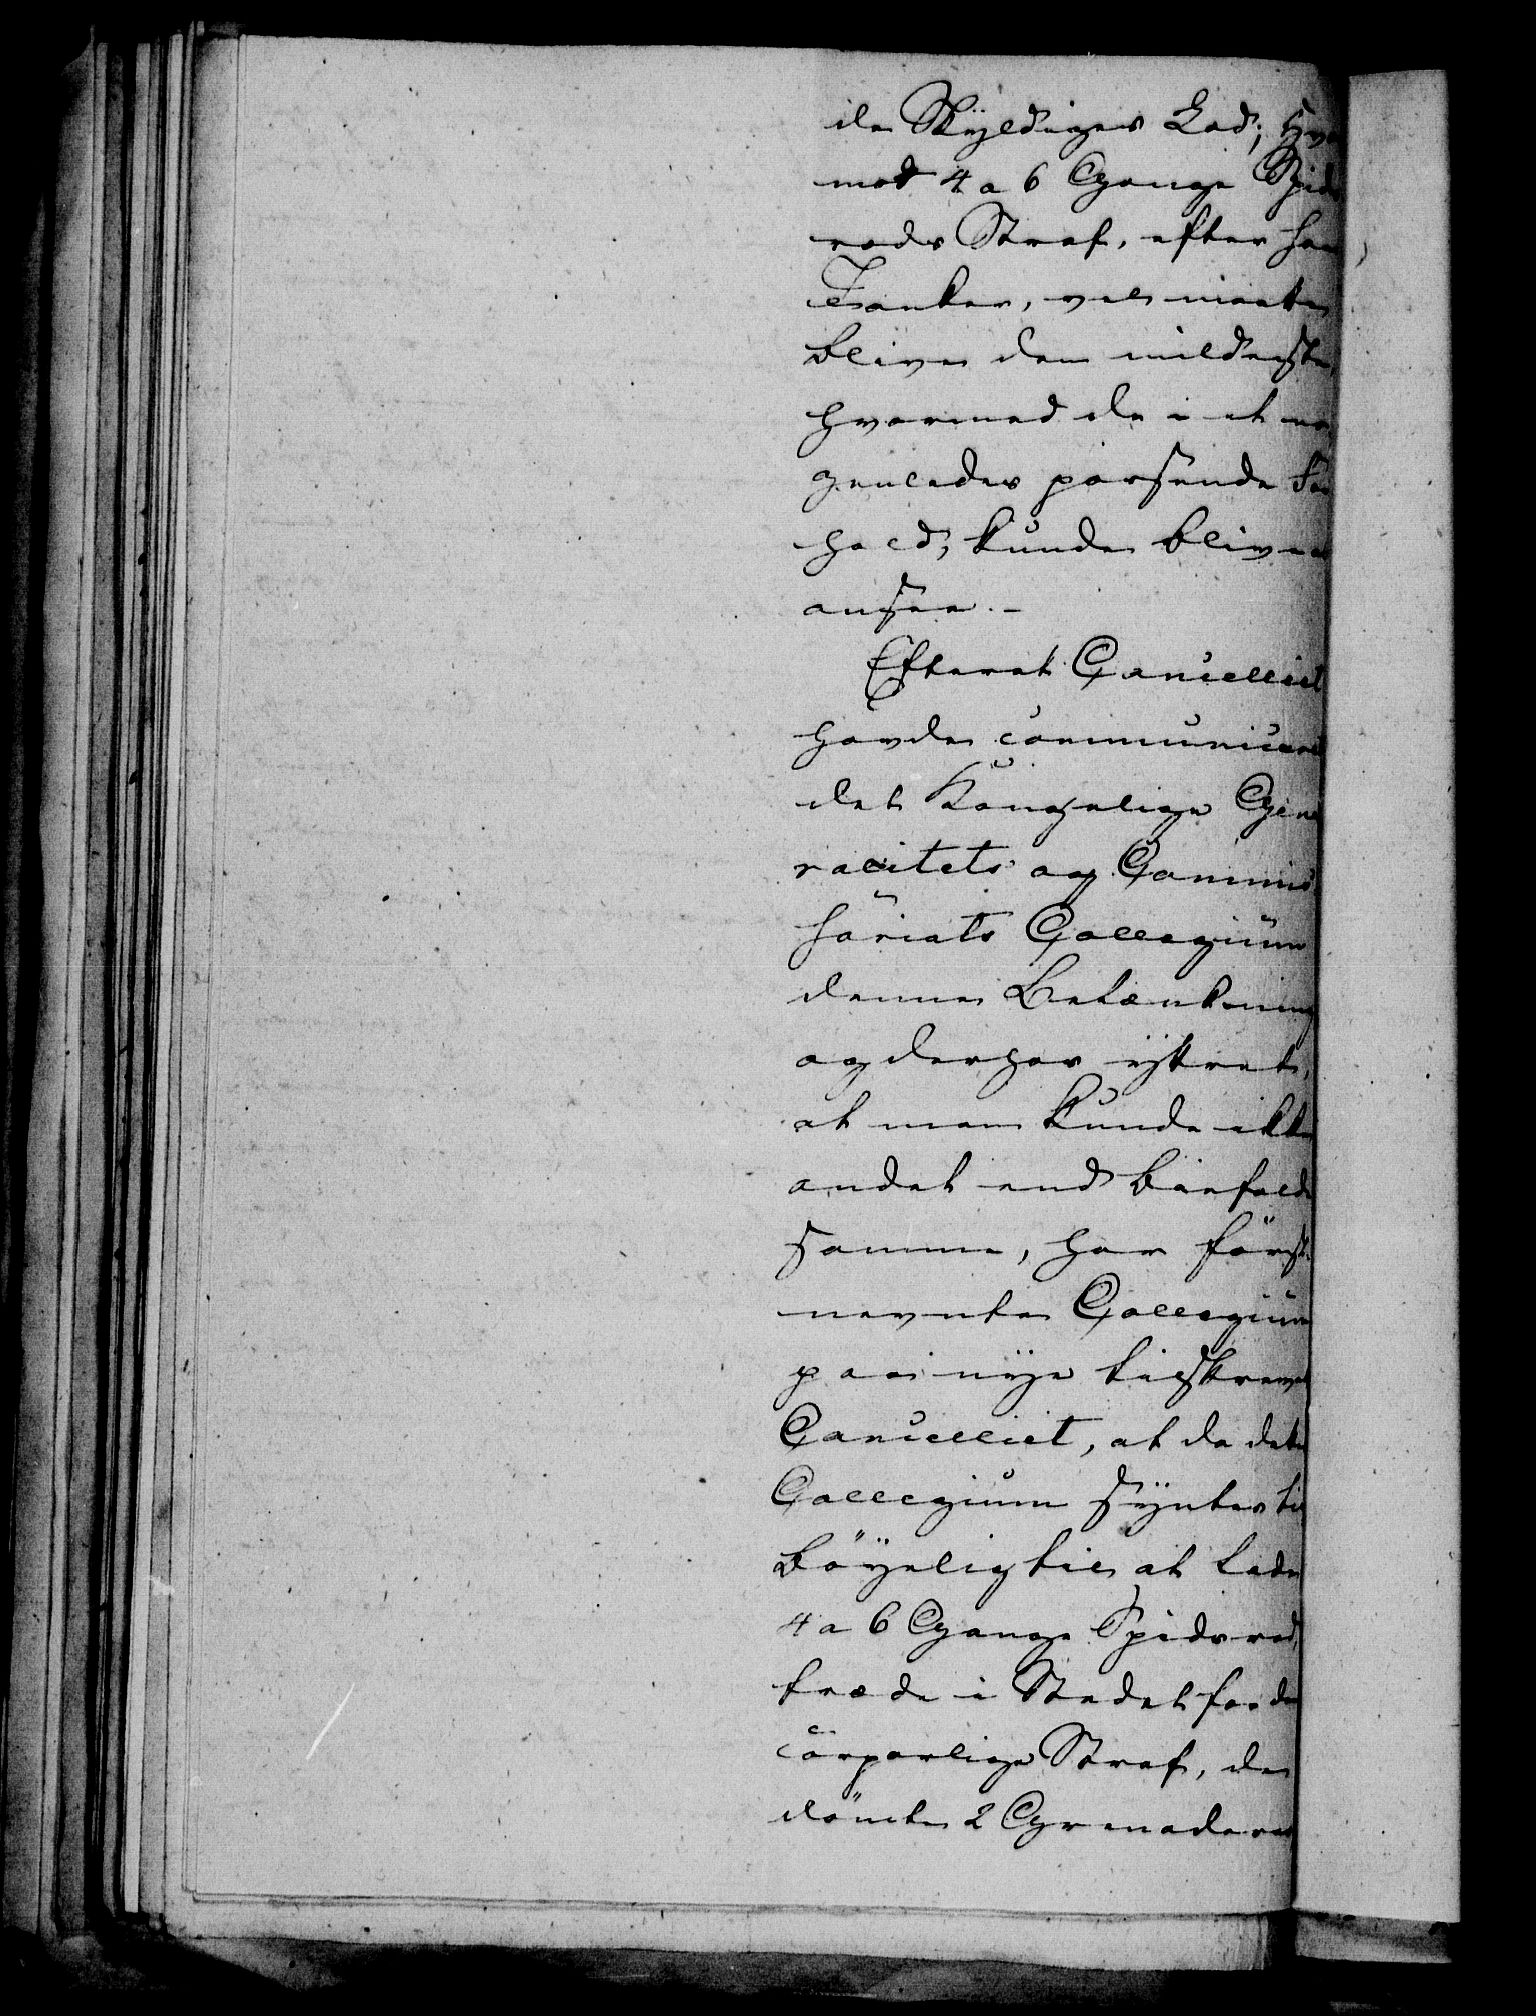 de Skyldiges Lod; Hvor
mod 4 a 6 Gange Spids
rods Straf, efter hans
Tanker, vel maatte
blive den mildeste,
hvormed de i et no
genledes passende For
hold, kunde bliver
ansee. –
Efterat Cancelliet
havde communiceret
det Kongelige Gene
ralitets og Commis
sariats Collegium
denne Betænkning
og derhos yttret,
at man kunde ikke
andet end biefalde
samme, har først
nevnte Collegium
paa nye tilskrevet
Cancelliet, at da dette
Collegium syntes til
böyelig til at lade
4 a 6 Gange Spidsrod,
træde i Stedet for den
corporlige Straf, de
dömte 2 Grenaderer